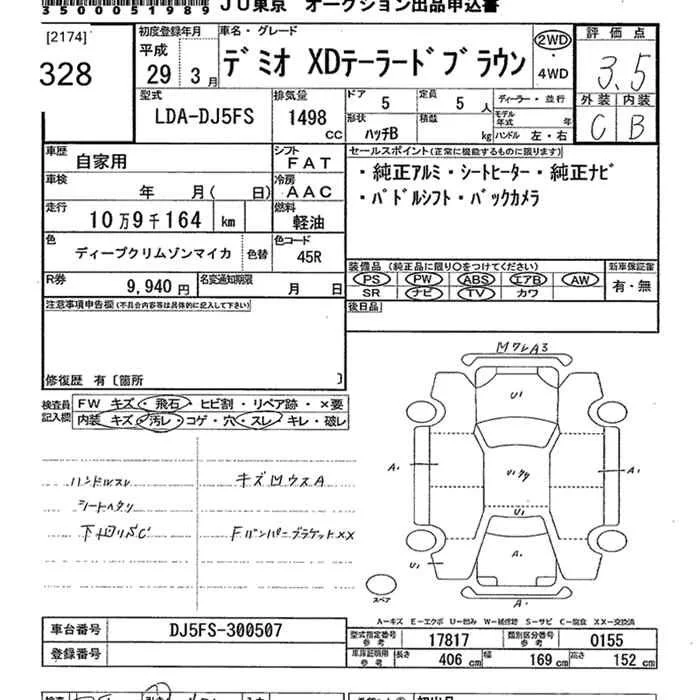 3500051989 JU東京 オークション出品申込書
[2174]
328
初度登録年月
平成
29年 3月
車名・グレード
デミオ XDテーラードブラウン
2WD
・
4WD
評価点
3.5
外装 内装
C B
型式
LDA-DJ5FS
排気量
1498
CC
ドア 5
定員 5 人
ディーラー・並行
形状
ハッチB
積載 kg
モデル年式 年
ハンドル 左・右
車歴
自家用
シフト
FAT
セールスポイント(正常に機能するものに限ります)
・純正アルミ・シートヒーター・純正ナビ
・パドルシフト・バックカメラ
車検
年 月( 日)
冷房
AAC
走行
10万9千164 km
燃料
軽油
色
ディープクリムゾンマイカ
色替
色コード
45R
装備品 (純正品に限り○をつけてください)
新車保証書
PS PW ABS エアB AW
有・無
SR ナビ TV カワ
R券
9,940 円
名変通知期限
月 日
後日品
注意事項申告欄(不具合内容等は具体的に記入して下さい)
修復歴 有〔箇所 〕
検査員記入欄
FW キズ・飛石・ヒビ割・リペア跡・×要
内装 キズ・汚レ・コゲ・穴・スレ・キレ・破レ
ハンドルスレ
キズ凹ウスA
シートヘタリ
下回りSC
FバンパーブラケットXX
A3
U1
A1
A1
U1
A1
U1
A1
スペア
A-キズ E-エクボ U-凹み W-補修跡 S-サビ C-腐食 XX-交換済
車台番号
DJ5FS-300507
型式指定番号
参考
17817
類別区分番号
参考
0155
登録番号
車庫証明用
参考
長さ 406 cm
幅 169 cm
高さ 152 cm